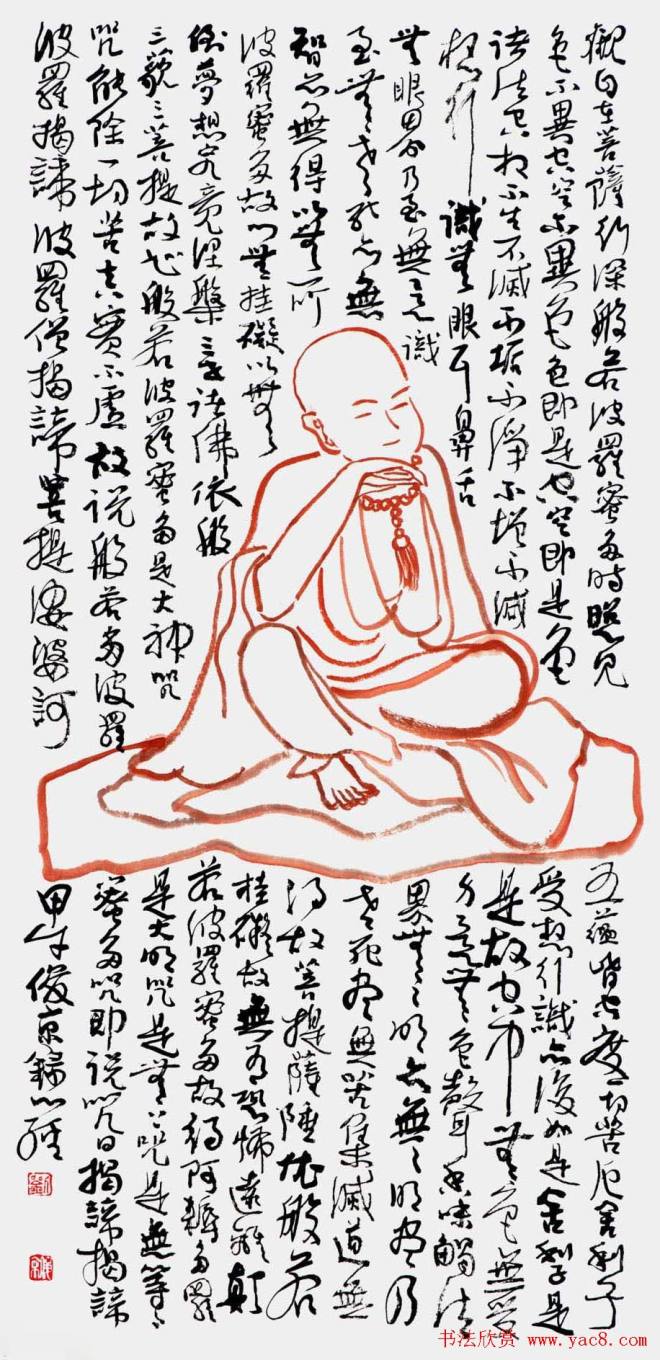 觀自在菩薩行深般若波羅蜜多時照見
五蘊皆空度一切苦厄舍利子
色不異空空不異色色即是空空即是色
受想行識亦復如是舍利子是
諸法空相不生不滅不垢不淨不增不減
是故空中無色無受
想行識無眼耳鼻舌
身意無色聲香味觸法
無眼界乃至無意識
界無無明亦無無明盡乃
至無老死亦無
老死盡無苦集滅道無
智亦無得以無所
得故菩提薩埵依般若
波羅蜜多故心無挂礙以無
挂礙故無有恐怖遠離顛
倒夢想究竟涅槃三世諸佛依般
若波羅蜜多故得阿耨多羅
三藐三菩提故知般若波羅蜜多是大神咒
是大明咒是無上咒是無等等
咒能除一切苦真實不虛故說般若多波羅
蜜多咒即說咒曰揭諦揭諦
波羅揭諦波羅僧揭諦菩提薩婆訶
甲午俊京錄心經
书法欣赏 www.yac8.com